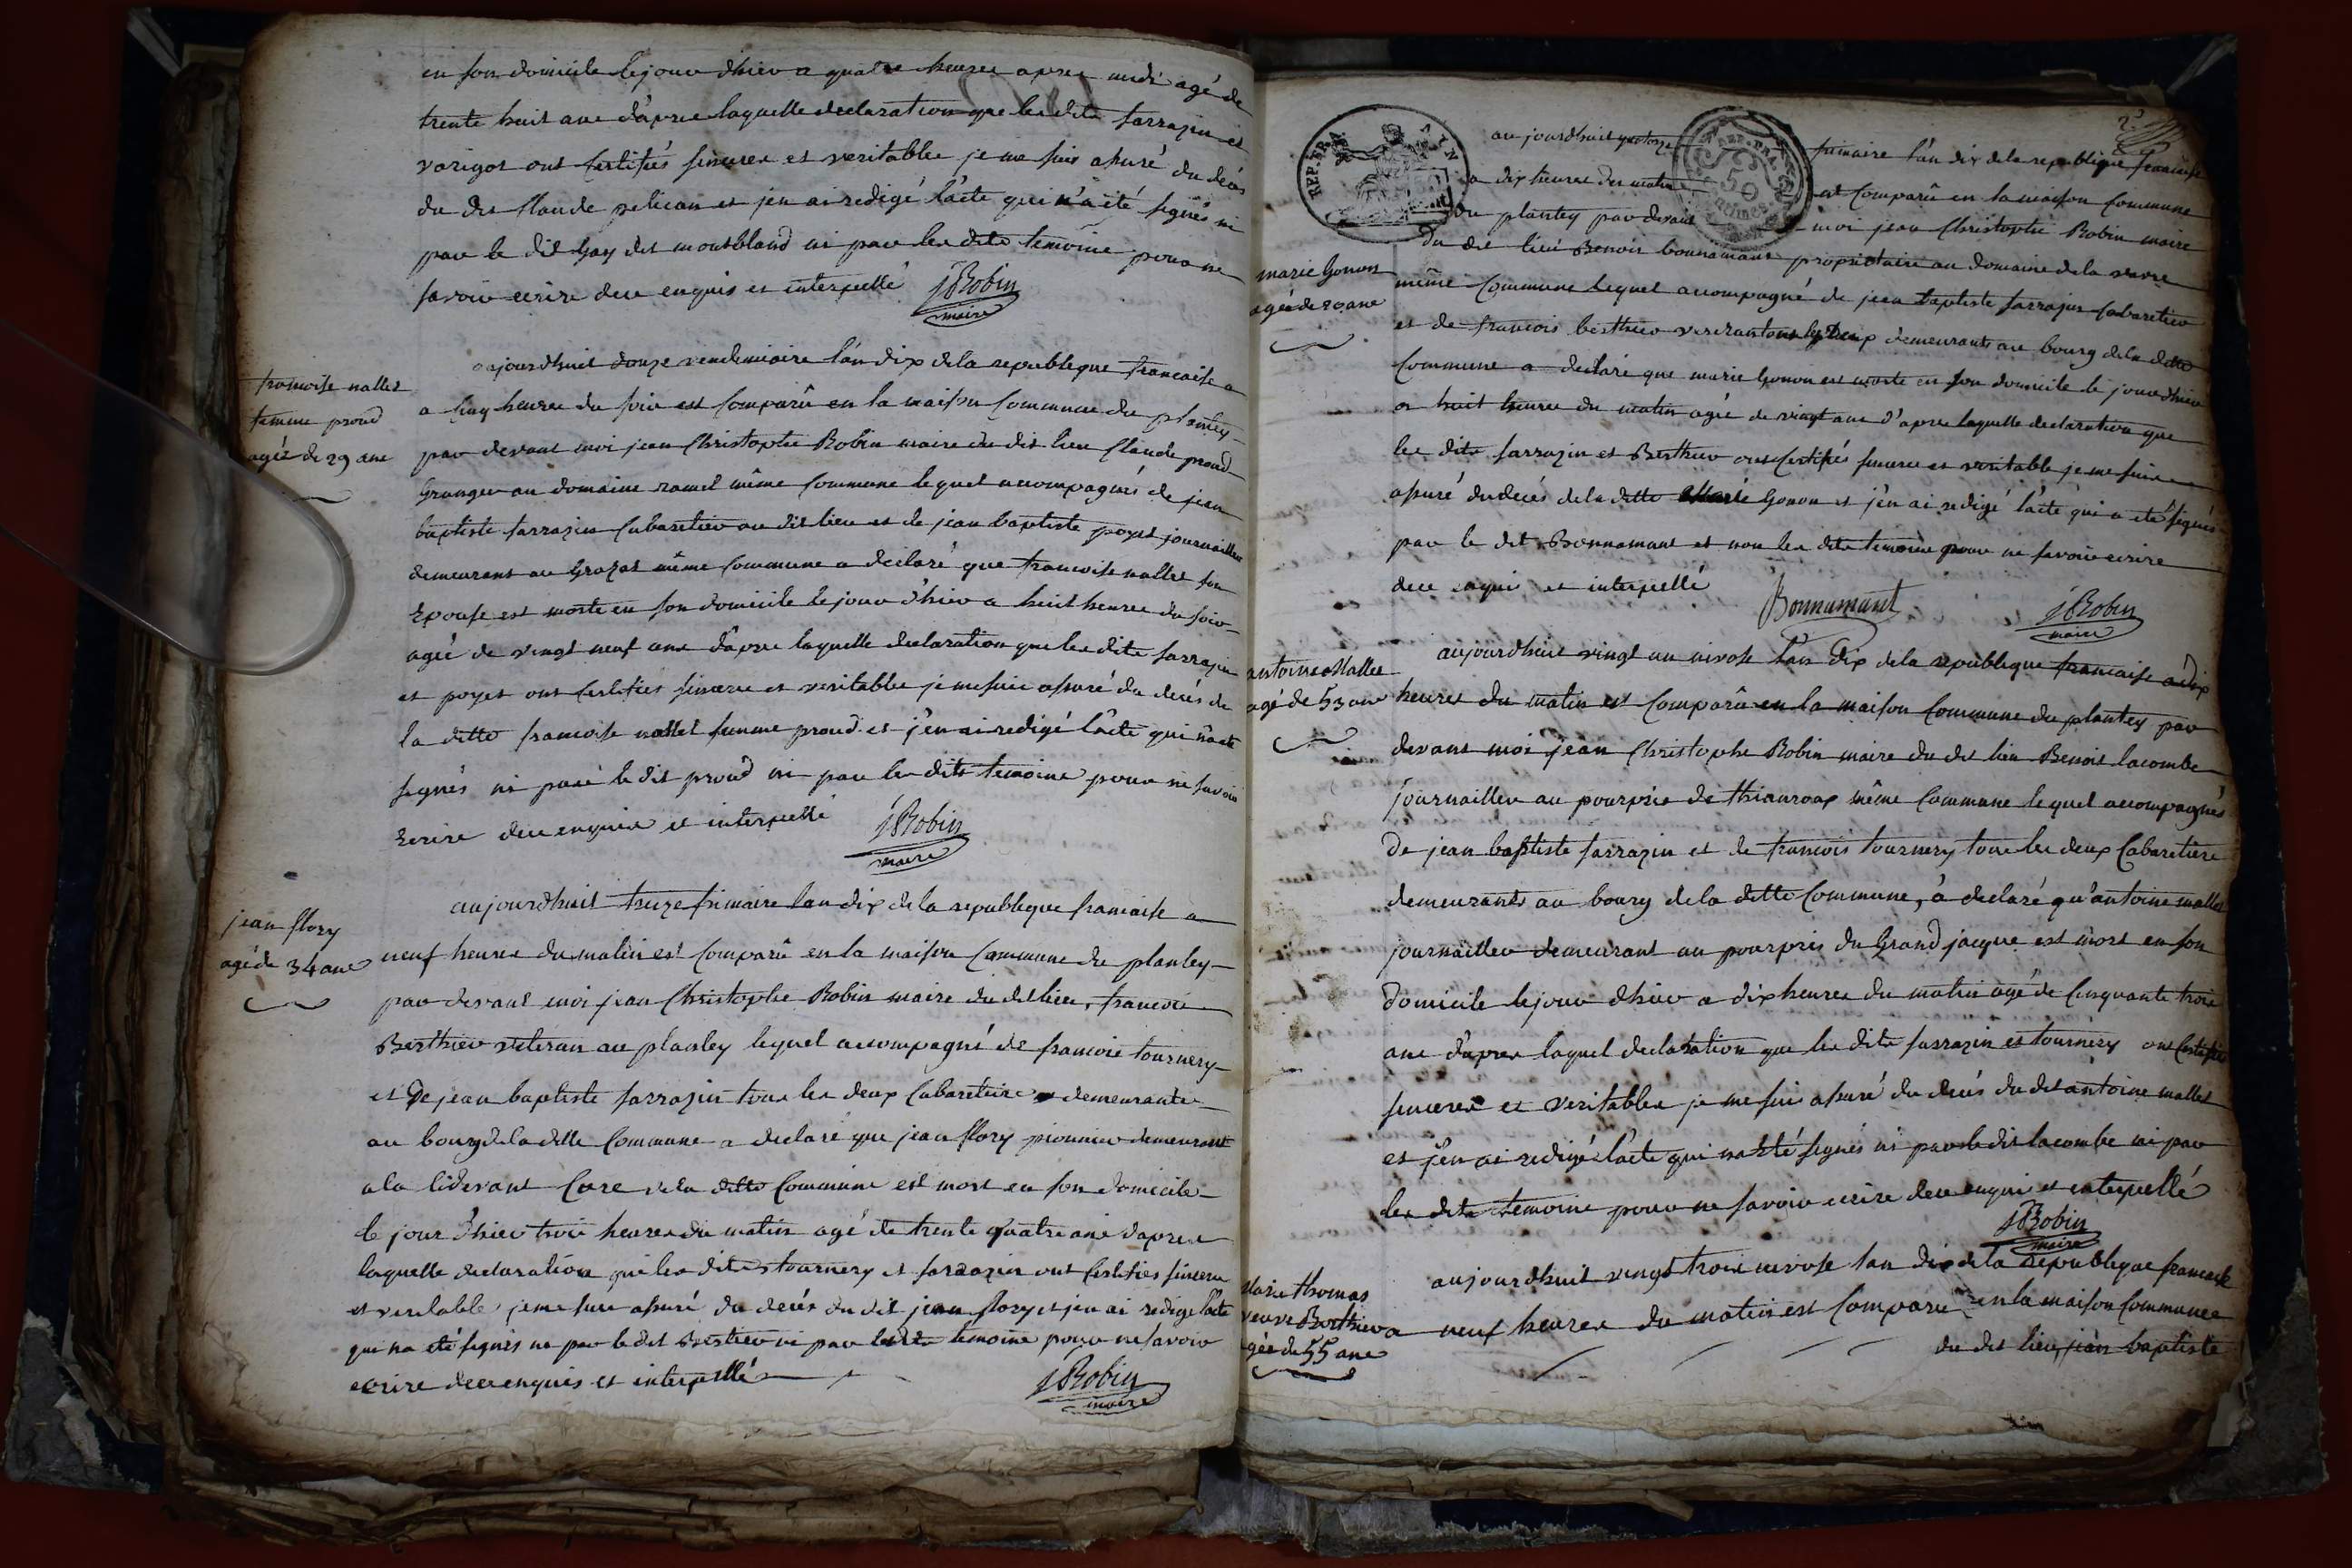 en son domicile le jour dhier a quatre heures apres midi agé de
trente huit ans d'apres laquelle declaration que les dits sarrazin et
varigos ont certifiés sinceres et veritables je me suis assuré du deces
du dit claude pelican et jen ai redigé l'acte qui n'a été signés ni
par le dit Gay dit montbland ni par les dits temoins pour ne
savoir ecrire de ce enquis et interpellé JRobin
maire
francoise nallet
femme proud
agée de 29 ans
aujourdhuit douze vendemiaire l'an dix de la republeque francaise a
a cinq heures du soir est comparû en la maison commune du plantey
par devant moi jean christophe Robin maire du dit lieu claude proud
Granger au domaine ramel même commune lequel accompagnés de jean
baptiste sarrazin cabaretier au dit lieu et de jean baptiste poyet journaillier
demeurans au Grozat même commune a declaré que francoise nallet son
Epouse est morte en son domicile le jour d'hier a huit heures du soir
agée de vingt neuf ans d'apres laquelle declaration que les dits sarrazin
et poyet ont certifiés sinceres et veritables je me suis assuré du decés de
la ditte francoise nallet femme proud et j'en ai redigé l'acte qui n'a été
signés ni par le dit proud ni par les dits temoins pour ne savoir
Ecrire de ce enquis et interpellé JRobin
maire
jean flory
agé de 34 ans
aujourdhuit treize frimaire lan dix de la republeque francaise a
neuf heures du matin est comparû en la maison commune du plantey
par devant moi jean christophe Robin maire du dit lieu, francois
Berthier veteran au plantey lequel accompagné de francois tournery
et De jean baptiste sarrazin tous les deux cabaretiers demeurants
au bourg de la ditte commune a declaré que jean flory pionnier demeurant
a la cidevant cure de la ditte commune est mort en son domicile
le jour d'hier trois heures du matin agé de trente quatre ans d'apres
laquelle declaration que les dits tournery et sarrazin ont certifiés sinceres
et veritables je me suis assuré du decés du dit jean flory et jen ai redigé l'acte
qui na été signés ni par le dit Berthier ni par les dits temoins pour ne savoir
ecrire de ce enquis et interpellé JRobin
maire
REP. FRA
AIN
REP. FRA.
50
centimes
2e
marie Gonon
agée de 20 ans
au jourdhuit quatorze frimaire l'an dix de la republique francaise
a dix heures du matin est comparû en la maison commune
du plantey par devant moi jean christophe Robin maire
du dit lieu Benoit bonnamant propriétaire au domaine de la verne
même commune lequel accompagné de jean baptiste sarrazin cabaretier
et de francois berthier veteran tous les Deux demeurants au bourg de la ditte
commune a declaré que marie Gonon est morte en son domicile le jour dhier
a huit heures du matin agée de vingt ans d'apres laquelle declaration que
les dits sarrazin et Berthier ont certifiés sinceres et veritable je me suis
assuré du decés de la ditte Marie Gonon et j'en ai redigé l'acte qui a été signés
par le dit Bonnamant et non les dits temoins pour ne savoir ecrire
de ce enqui et interpellé Bonnamant JRobin
maire
antoine Mallet
agé de 53 ans
aujourdhuit vingt un nivose l'an dix de la republeque francaise a dix
heures du matin est comparû en la maison commune du plantey par
devant moi jean christophe Robin maire du dit lieu Benoit lacombe
journaillier au pourpris de thianroux même commune lequel accompagnés
De jean baptiste sarrazin et de francois tournery tous les deux cabaretiers
demeurants au bourg de la ditte commune, à declaré qu'antoine mallet
journaillier demeurant au pourpris du Grand jacque est mort en son
domicile le jour dhier a dix heures du matin agé de cinquante trois
ans d'apres laquel declaration que les dits sarrazin et tournery ont certifiés
sinceres et veritables je me suis assuré du decés du dit antoine mallet
et j'en ai redigé l'acte qui na été signés ni par le dit lacombe ni par
les dits temoins pour ne savoir ecrire de ce enqui et interpellé
JRobin
maire
Marie thomas
veuve Berthier
agée de 55 ans
aujourdhuit vingt trois nivose lan dix de la republeque francaise
a neuf heures du matin est comparu en la maison commune
du dit lieu, jean baptiste